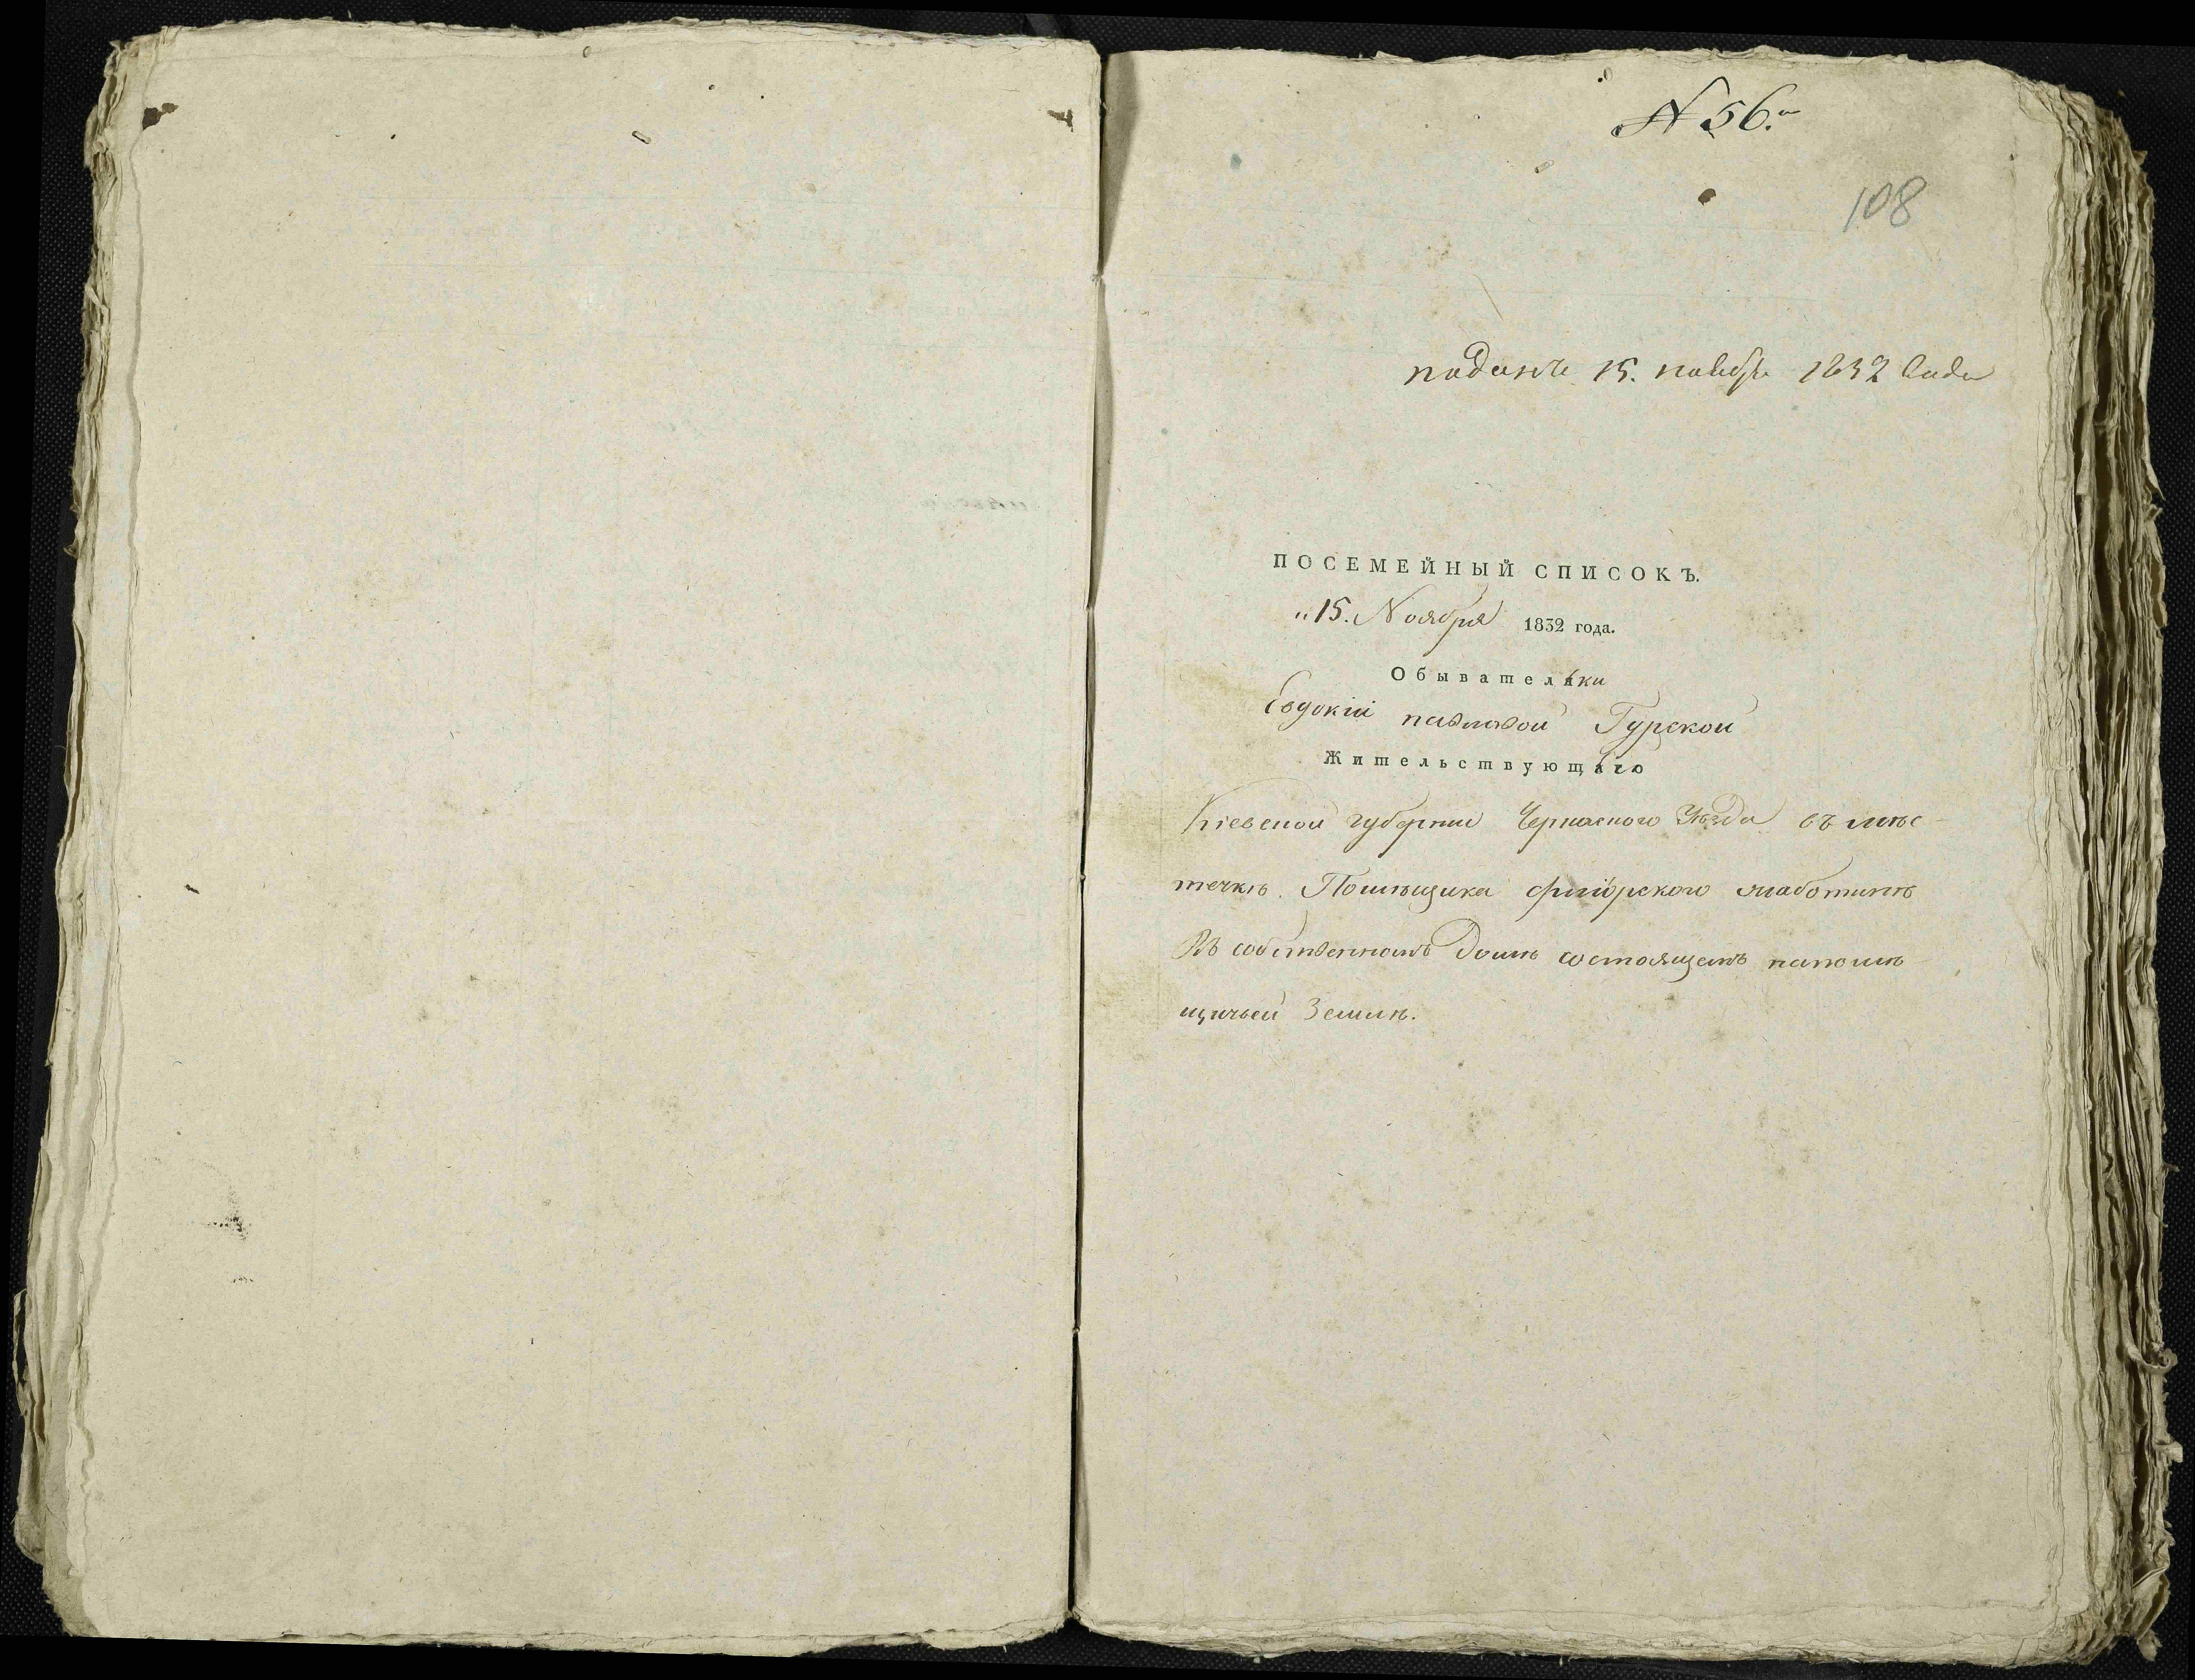 N 56.
108
поданъ 15. ноября 1832 года
ПОСЕМЕЙНЫЙ СПИСОКЪ.
"15. Ноября 1832 года.
Обывательки
Евдокіи павловой Гурской
Жительствующаго
Кіевской губерніи Черкаского Уѣзда въ мѣс-
течкѣ. Помѣщика флиорского жаботинѣ
Въ собственномъ домѣ состоящемъ напомѣ
щичьей Землѣ.